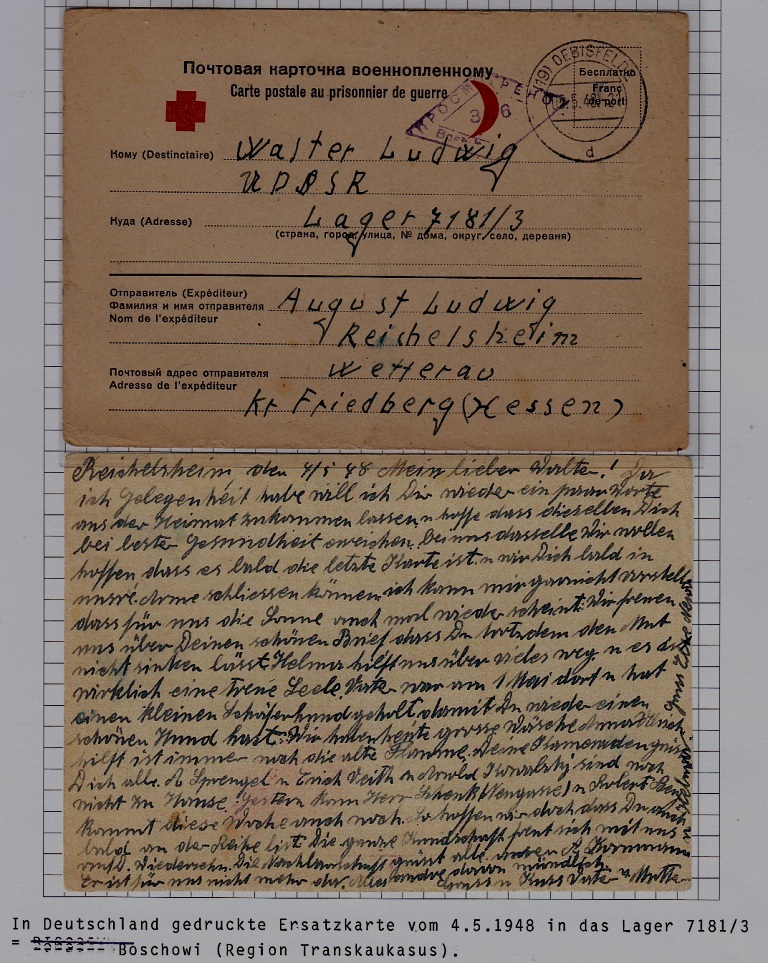 Почтовая карточка военнопленному
Carte postale au prisonnier de guerre
(19) OEBISFELDE
d
Бесплатно
Franc
de port
ПРОСМОТРЕНО
36
Кому (Destinctaire) Walter Ludwig
UDSSR
Куда (Adresse) Lager 7181/3
(страна, город, улица, № дома, округ, село, деревня)
Отправитель (Expéditeur)
Фамилия и имя отправителя August Ludwig
Nom de l'expéditeur
Reichelsheim
Почтовый адрес отправителя Wetterau
Adresse de l'expéditeur
Kr Friedberg (Hessen)
Reichelsheim, den 4/5 48 Mein lieber Walter! Da
ich Gelegenheit habe will ich Dir wieder ein paar Worte
aus der Heimat zukommen lassen, u hoffe dass dieselben Dich
bei bester Gesundheit erreichen. Bei uns dasselbe Wir wollen
hoffen, dass es bald die letzte Karte ist. u wir Dich bald in
unsre Arme schliessen können, ich kann mir garnicht vorstell
dass für uns die Sonne auch mal wieder scheint. Wir freuen
uns über Deinen schönen Brief, dass Du trotzdem den Mut
nicht sinken lässt. Helma hilft uns über vieles weg, u es ist
wirklich eine treue Seele Vater war am 1 Mai dort u hat
einen kleinen Schäferhund geholt, damit Du wieder einen
schönen Hund hast. Wir haben heute grosse Wäsche Anna
hilft ist immer noch die alte Flamme. Deine Kameraden grüss
Dich alle. A Sprengel u Erich Veith u Arnold sind noch
nicht zu Hause. Gestern kam Herr Schenk (Neugasse) u Robert
kommt diese Woche auch noch. So hoffen wir doch dass Du auch
bald an der Reihe bist. Die ganze Kundschaft freut sich mit uns
auf D. Wiedersehn. Die Nachbarschaft grüsst alle. A Kornmann
Er ist für uns nicht mehr da. Alles andre davon mündlich.
Gruss u Kuss Vater u Mutter
u Helma
In Deutschland gedruckte Ersatzkarte vom 4.5.1948 in das Lager 7181/3
= Boschowi (Region Transkaukasus).